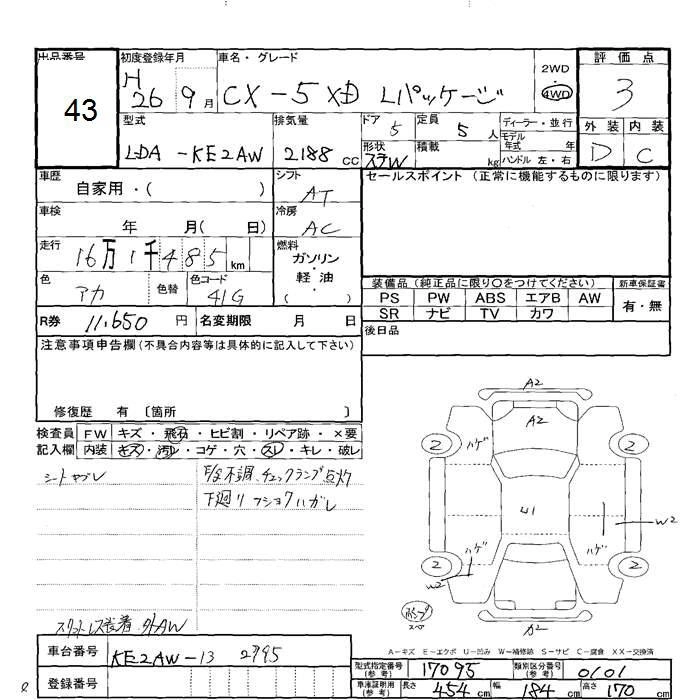 出品番号
43
初度登録年月
H 26 9月
車名・グレード
CX-5 XD Lパッケージ
2WD
4WD
評価点
3
外装 内装
D C
型式
LDA-KE2AW
排気量
2188 cc
ドア 5
定員 5 人
形状 ステW
積載 kg
ディーラー・並行
モデル年式 年
ハンドル 左・右
車歴
自家用・( )
シフト
AT
車検
年 月( 日)
冷房
AC
走行
16万1千485 km
燃料
ガソリン
・
軽油
( )
色
アカ
色替
色コード
41G
R券 11,650 円
名変期限 月 日
セールスポイント (正常に機能するものに限ります)
装備品 (純正品に限り〇をつけてください)
新車保証書
PS PW ABS エアB AW
SR ナビ TV カワ
有・無
後日品
注意事項申告欄(不具合内容等は具体的に記入して下さい)
修復歴 有〔箇所 〕
検査員 FW キズ・飛石・ヒビ割・リペア跡・×要
記入欄 内装 キズ・汚レ・コゲ・穴・スレ・キレ・破レ
シートヤブレ
不調 チェックランプ点灯
下廻リ フショクハガレ
装着 外AW
A2
A2
2 ハゲ 2
U1
W2
ハゲ ハゲ
2 2
W2
A2
スペ
A-キズ E-エクボ U-凹み W-補修跡 S-サビ C-腐食 XX-交換済
車台番号
KE2AW-13 2795
登録番号
型式指定番号(参考) 17095
類別区分番号(参考) 0101
車庫証明用(参考) 長さ 454 cm 幅 184 cm 高さ 170 cm